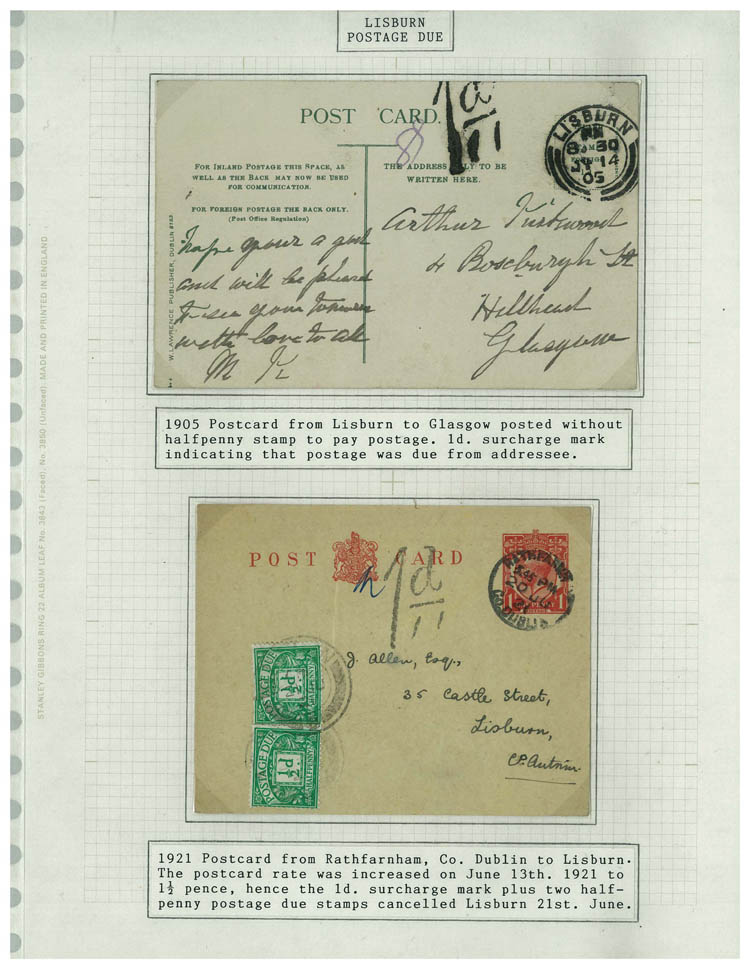 LISBURN
POSTAGE DUE
POST CARD.
1d
LISBURN
8.30
JY 14
05
FOR INLAND POSTAGE THIS SPACE, AS
WELL AS THE BACK MAY NOW BE USED
FOR COMMUNICATION.
FOR FOREIGN POSTAGE THE BACK ONLY.
(Post Office Regulation)
THE ADDRESS ONLY TO BE
WRITTEN HERE.
W. LAWRENCE PUBLISHER, DUBLIN
hope your a good
and will be pleased
to see you tomorrow
with love to all
M K
Arthur Kirkwood
4 Roseburgh St
Hillhead
Glasgow
1905 Postcard from Lisburn to Glasgow posted without
halfpenny stamp to pay postage. 1d. surcharge mark
indicating that postage was due from addressee.
POST CARD
1d
RATHFARNHAM
5.45 PM
20 JU
21
CO. DUBLIN
1 1
J. Allen, Esq.,
35 Castle Street,
Lisburn,
Co. Antrim.
POSTAGE DUE
½d
HALFPENNY
POSTAGE DUE
½d
HALFPENNY
1921 Postcard from Rathfarnham, Co. Dublin to Lisburn.
The postcard rate was increased on June 13th. 1921 to
1½ pence, hence the 1d. surcharge mark plus two half-
penny postage due stamps cancelled Lisburn 21st. June.
STANLEY GIBBONS RING 22 ALBUM LEAF No. 3843 (Faced), No. 3850 (Unfaced). MADE AND PRINTED IN ENGLAND